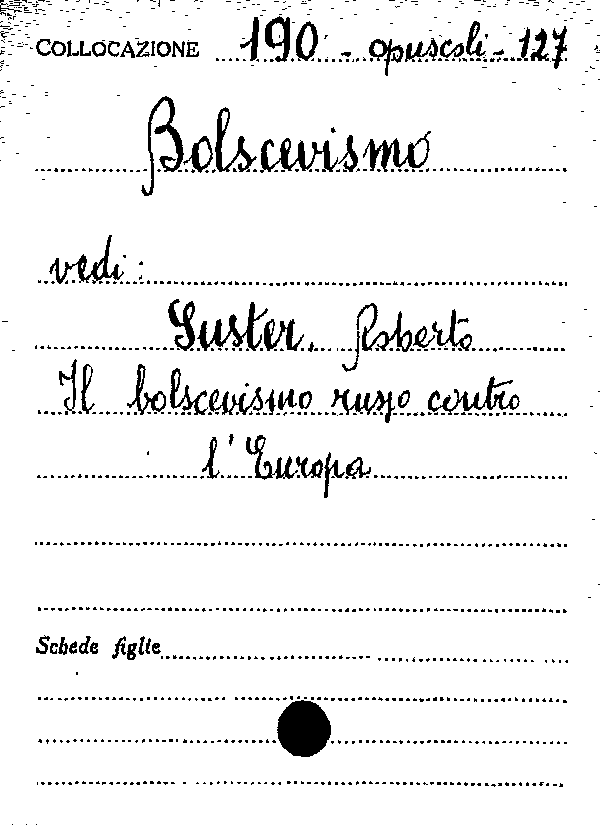 COLLOCAZIONE 190 - opuscoli - 127
Bolscevismo
vedi:
Suster, Roberto
Il bolscevismo russo contro
l'Europa
Schede figlie